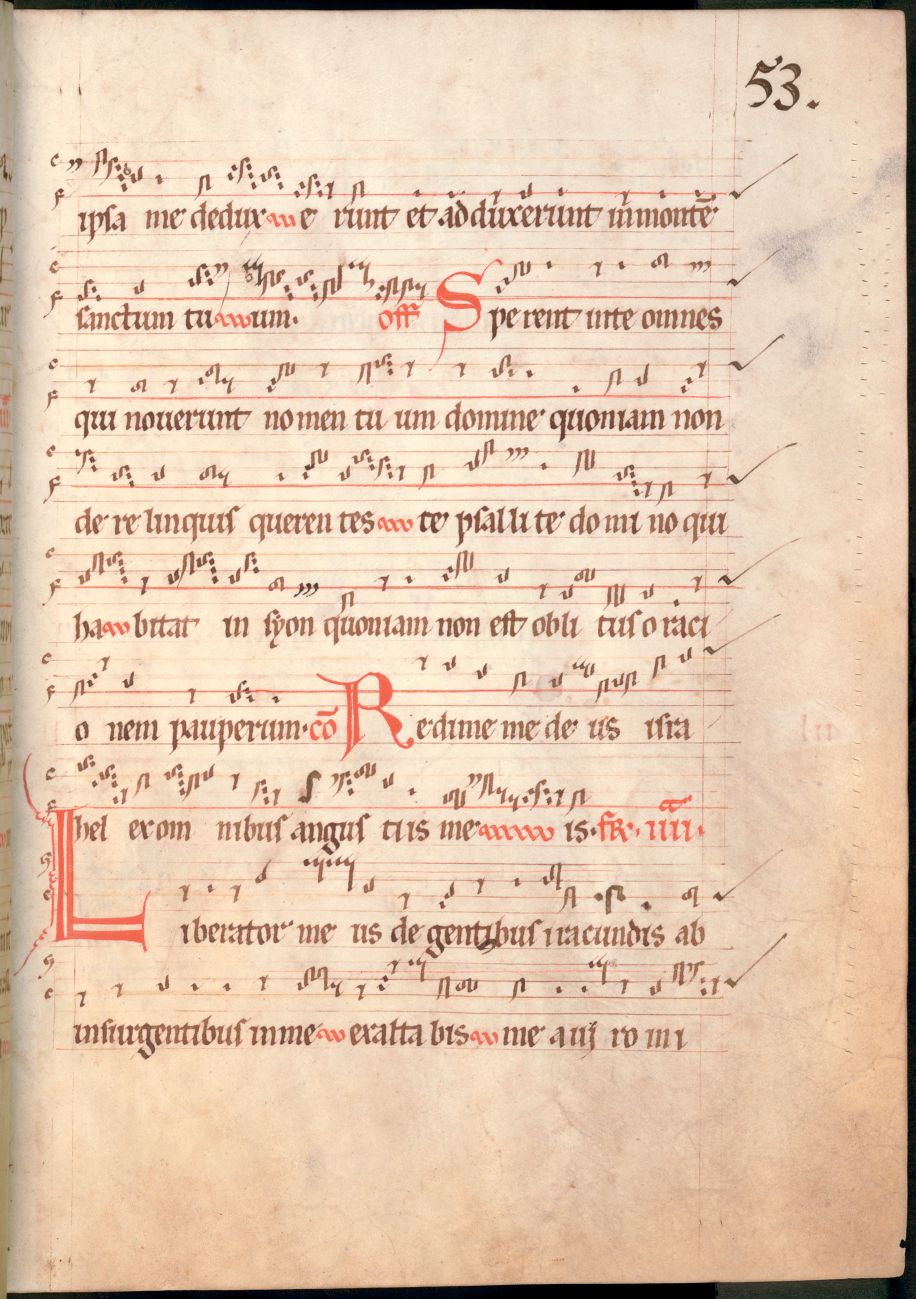 53.
ipsa me dedux e runt et adduxerunt in montē
sanctum tu um. off Sperent in te omnes
qui noverunt nomen tu um domine quoniam non
de re linquis queren tes te psalli te do mi no qui
ha bitat in syon quoniam non est obli tus o raci
o nem pauperum. cō Redime me de us isra
hel ex om nibus angus tiis me is. fr. iiii.
Liberator me us de gentibus iracundis ab
insurgentibus in me exalta bis me a uiro ini